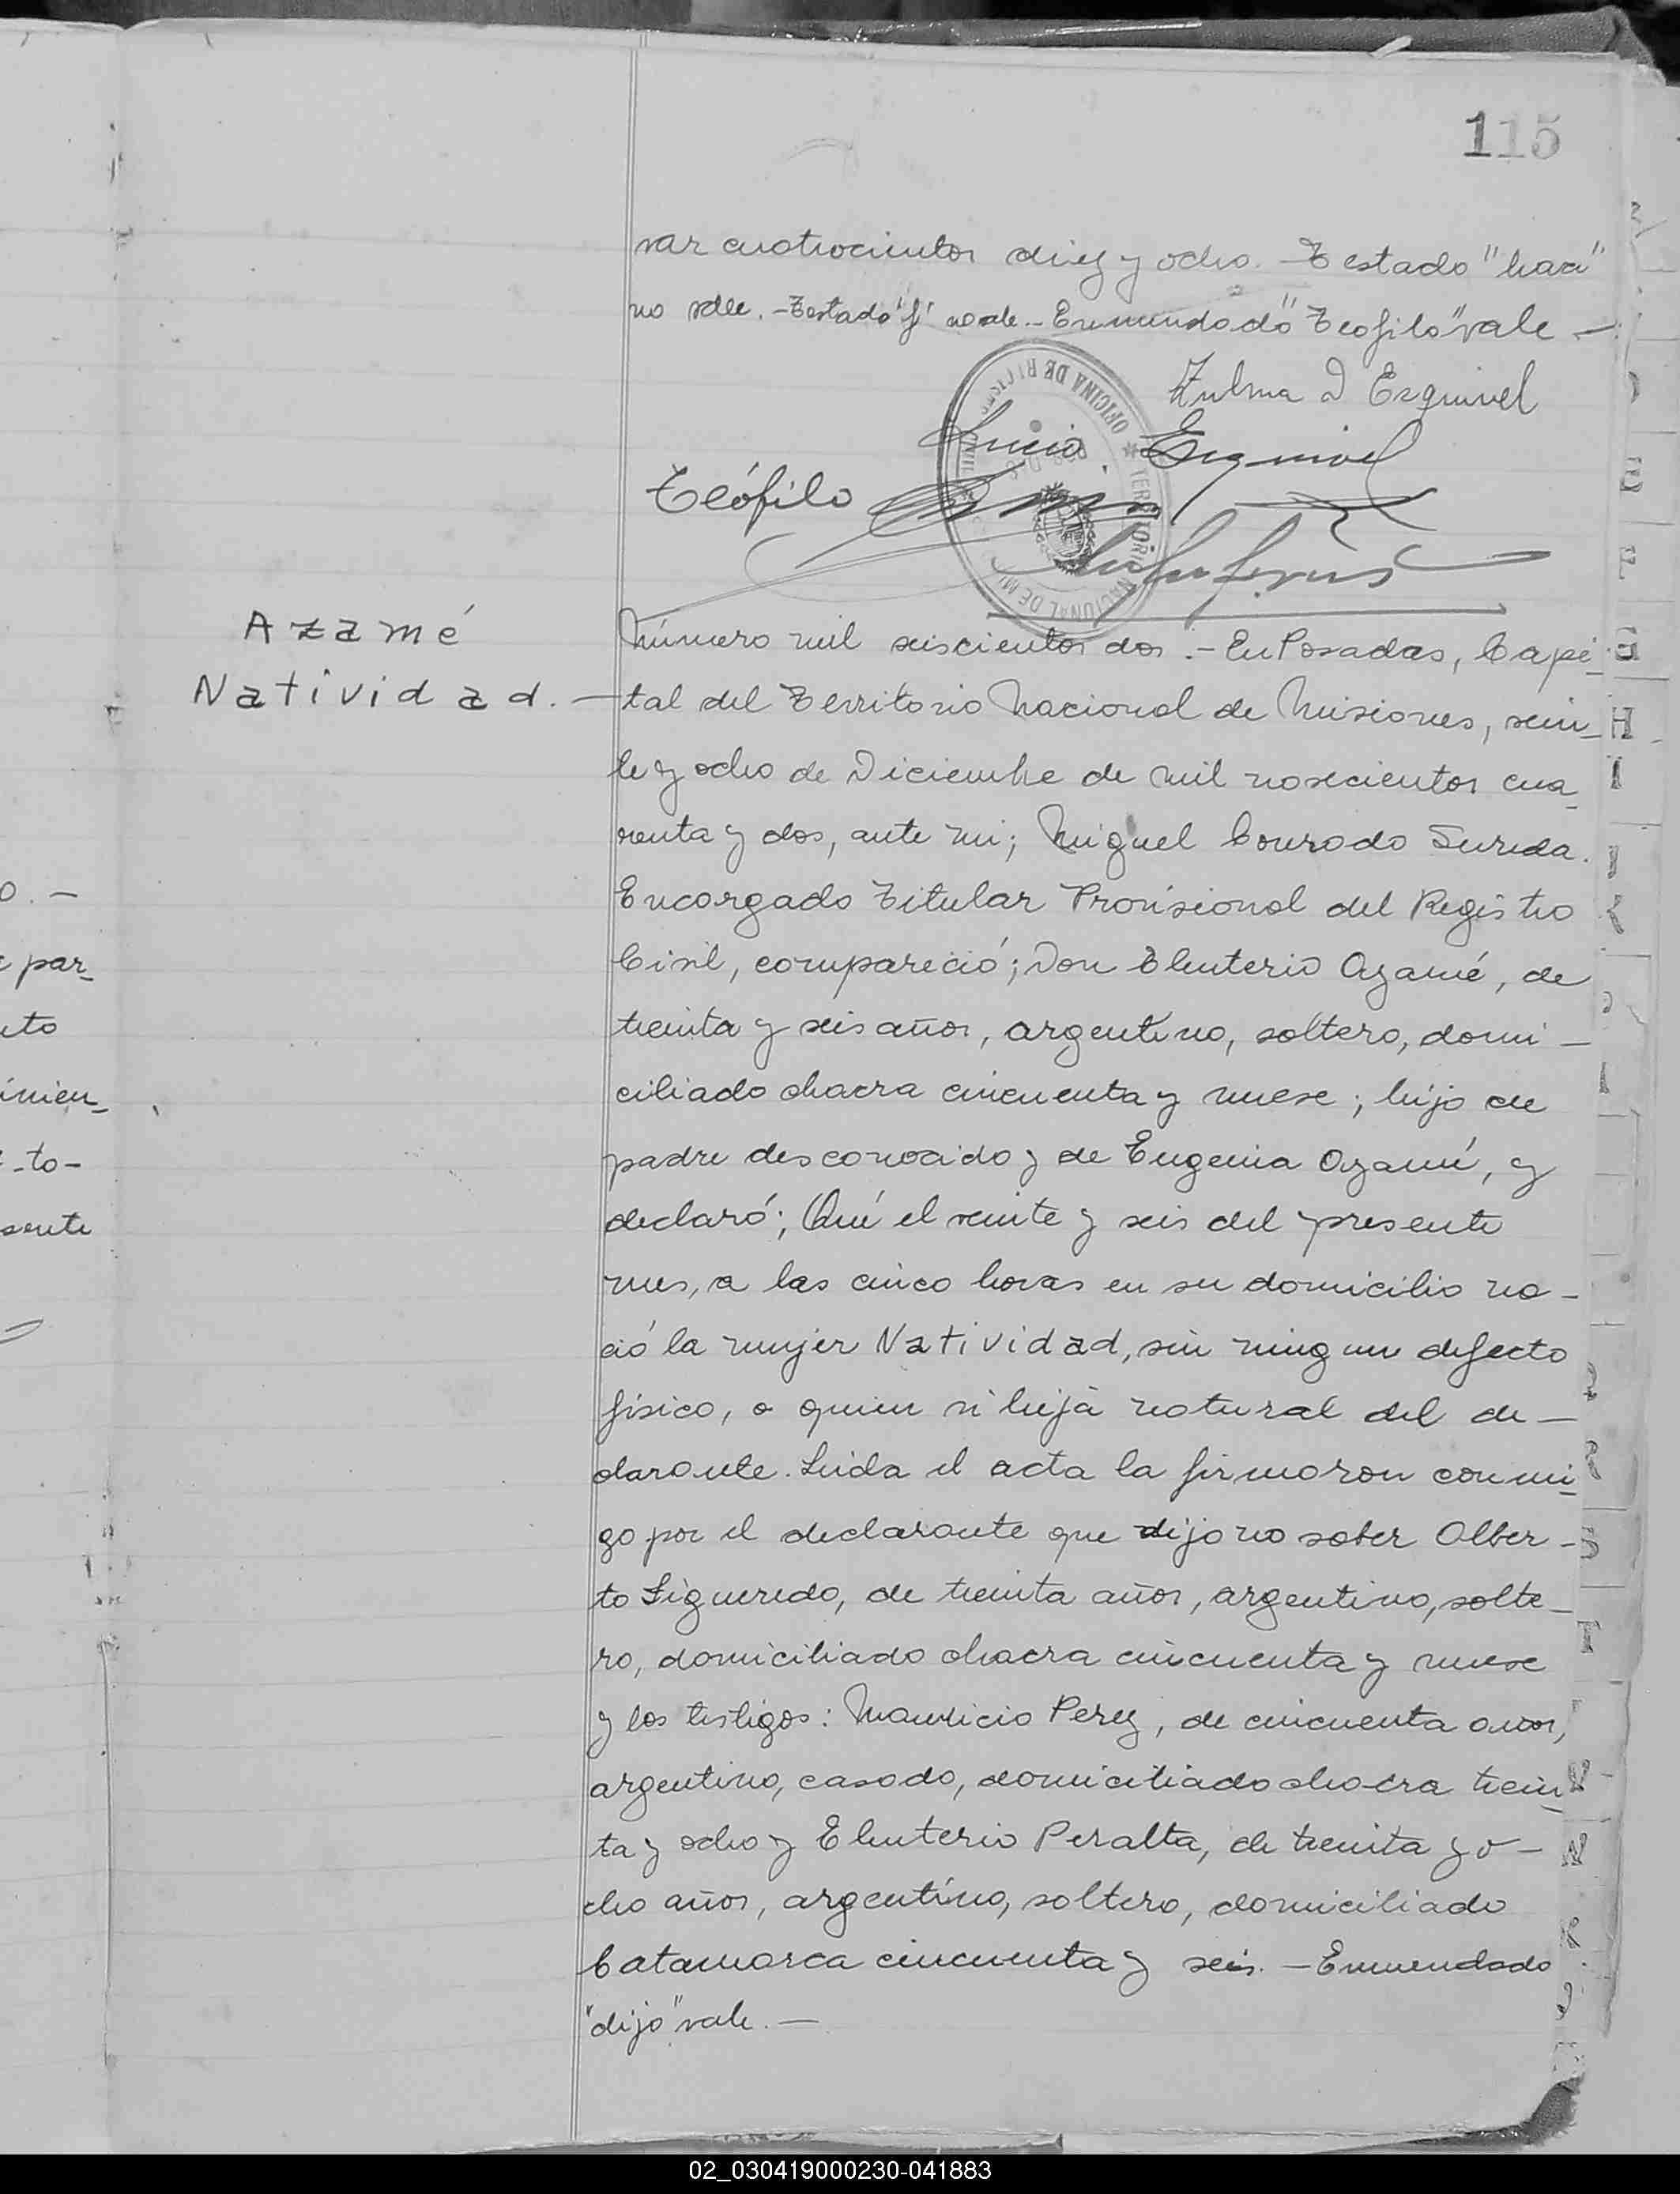 115
var cuatrocientos diez y ocho. - Testado "hará"
no vale. - Testado "f" no vale - Enmendado "Teofilo" vale -
Zulma D Esquivel
Lucio Esquivel
Teófilo
OFICINA DE REGISTRO CIVIL
TERRITORIO NACIONAL DE MISIONES
Azamé
Natividad. -
Número mil seiscientos dos. - En Posadas, Capi-
tal del Territorio Nacional de Misiones, vein-
te y ocho de Diciembre de mil novecientos cua-
renta y dos, ante mi; Miguel Conrado Sureda.
Encargado Titular Provisional del Registro
Civil, compareció; Don Eleuterio Azamé, de
treinta y seis años, argentino, soltero, domi-
ciliado chacra cincuenta y nueve; hijo de
padre desconocido y de Eugenia Azamé, y
declaró; Qué el veinte y seis del presente
mes, a las cinco horas en su domicilio na-
ció la mujer Natividad, sin ningun defecto
físico, a quien vi hija natural del de-
clarante. Leida el acta la firmaron conmi-
go por el declarante que dijo no saber Alber-
to Figueredo, de treinta años, argentino, solte-
ro, domiciliado chacra cincuenta y nueve
y los testigos: Mauricio Perez, de cincuenta años,
argentino, casado, domiciliado chacra trein-
ta y ocho y Eleuterio Peralta, de treinta y o-
cho años, argentino, soltero, domiciliado
Catamarca cincuenta y seis. - Enmendado
"dijo" vale. -
o. -
par-
uto
imien-
-to-
sente
02_030419000230-041883